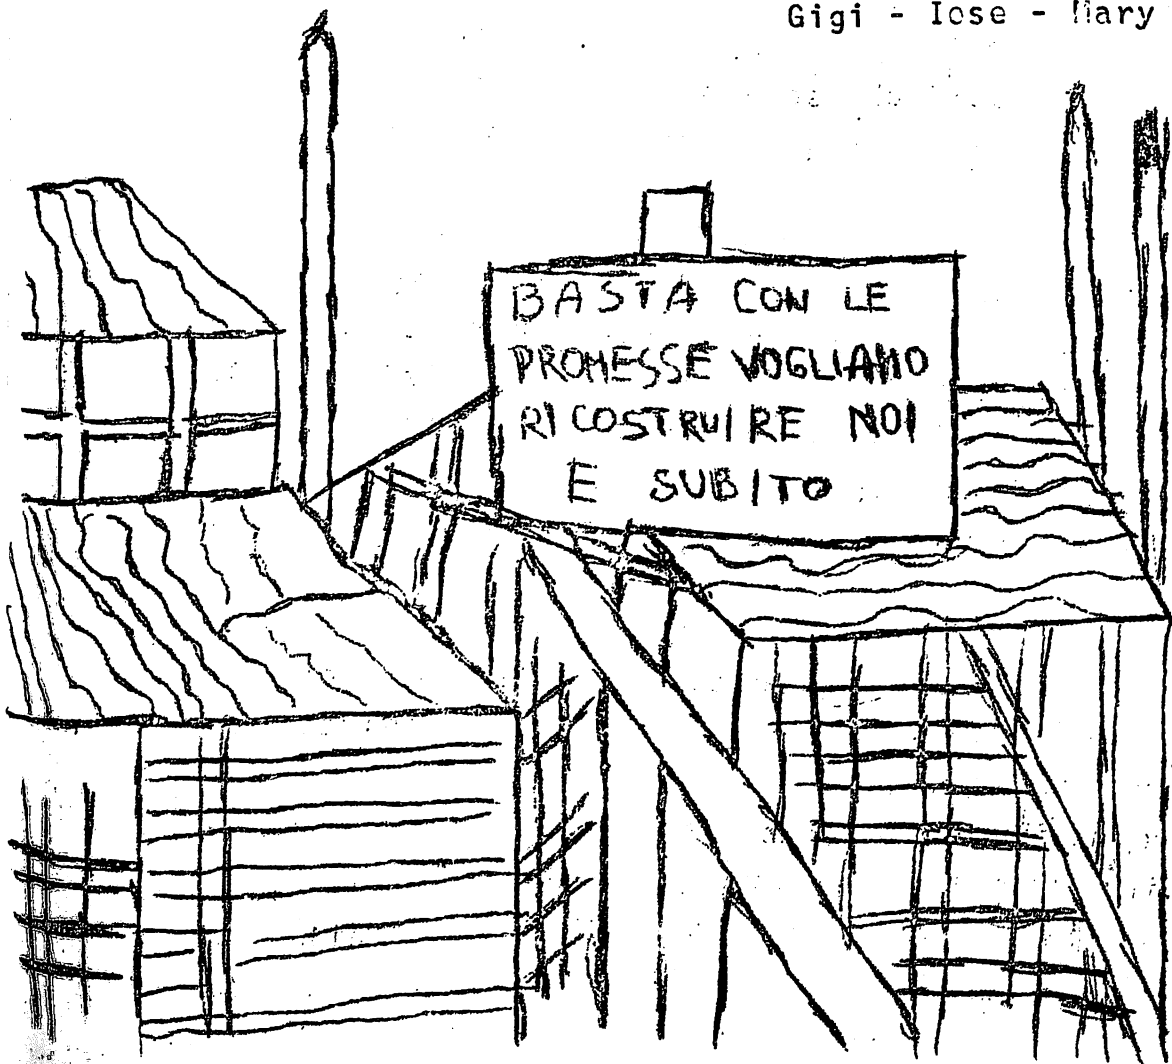 Gigi - Iose - Mary
BASTA CON LE
PROMESSE VOGLIAMO
RICOSTRUIRE NOI
E SUBITO